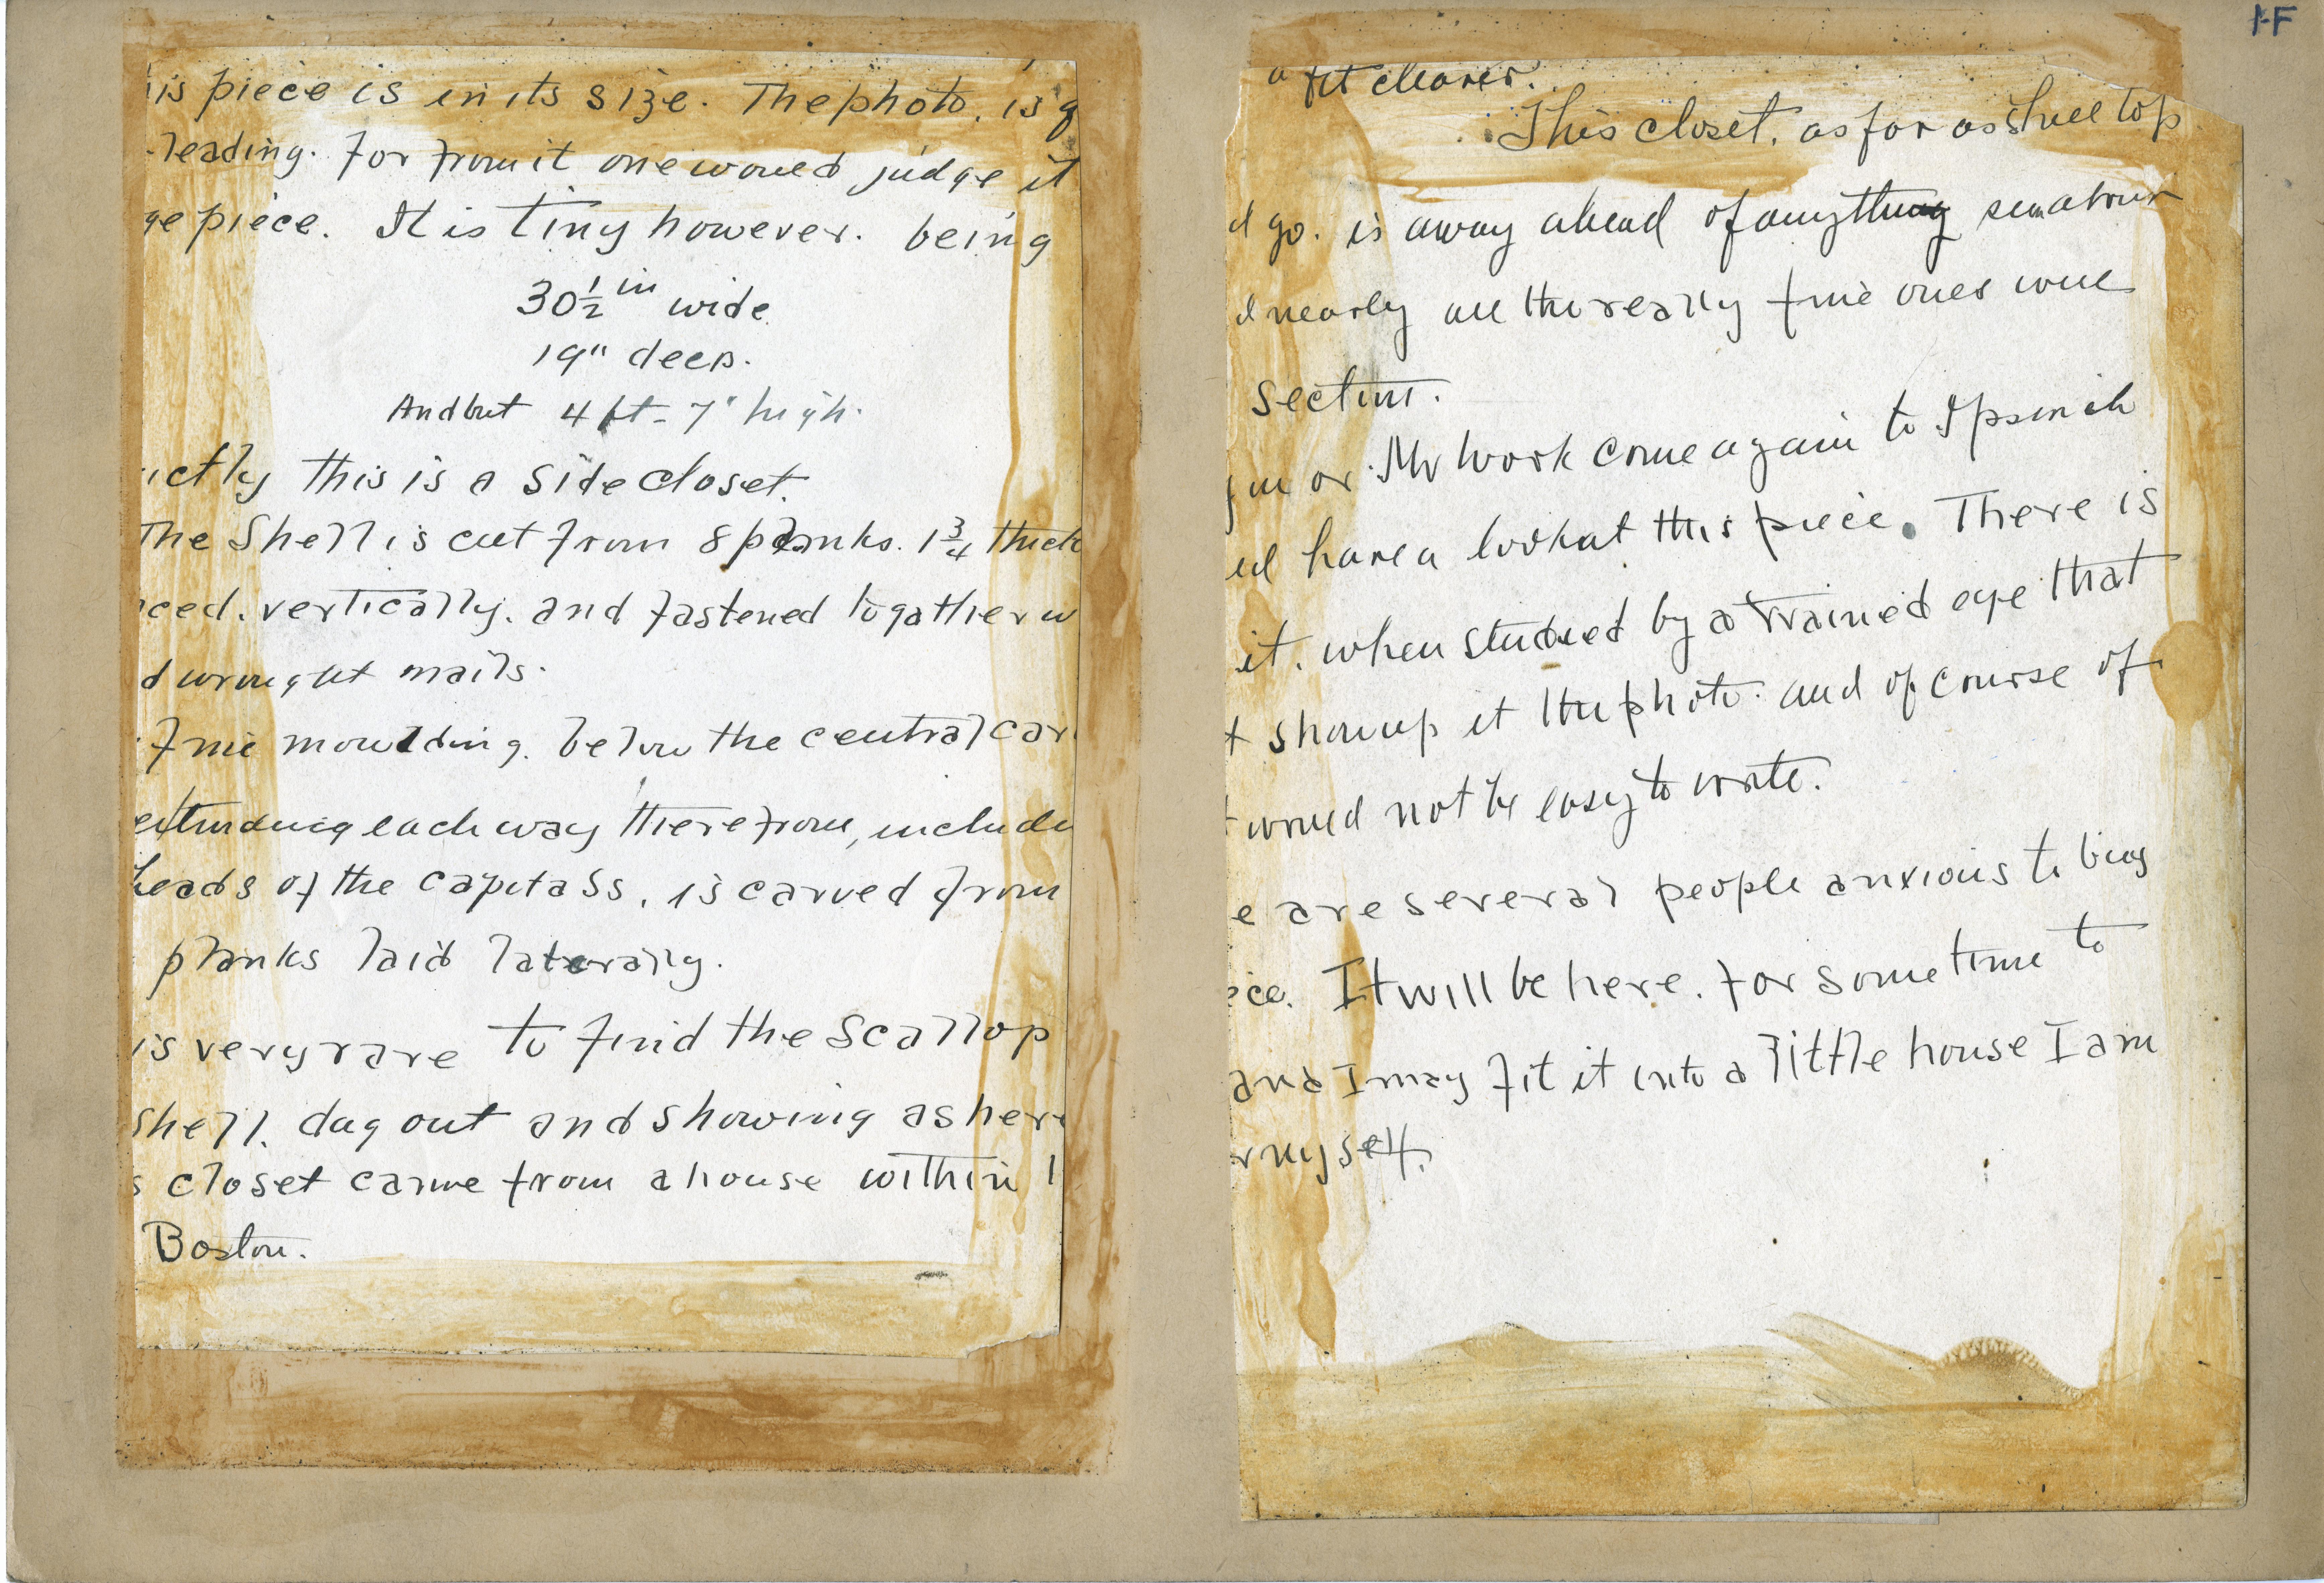 is piece is in its size. The photo. is q
-leading. for from it one would judge it
ge piece. It is tiny however. being
30½ in wide.
19" deep.
And but 4 ft - 7" high.
ictly this is a side closet.
The Shell is cut from 8 planks. 1¾ thick
ced. vertically. and fastened togather w
d wrought nails.
fine moulding. below the central car
extending each way therefrom, includ
heads of the capitals, is carved from
planks laid laterally.
is very rare to find the scallop
shell. dug out and showing as her
s closet came from a house within 1
Boston.
1-F
a ft clearer.
This closet. as far as shell top
d go. is away ahead of anything
d nearly all the really fine ones were
Section.
you or Mr Work come again to Ipswich
ld have a look at this piece. There is
it. when studied by a trained eye that
t show up it the photo. and of course of
t would not be easy to write.
e are several people anxious to buy
ece. It will be here. for some time to
and I may fit it into a little house I am
r myself.